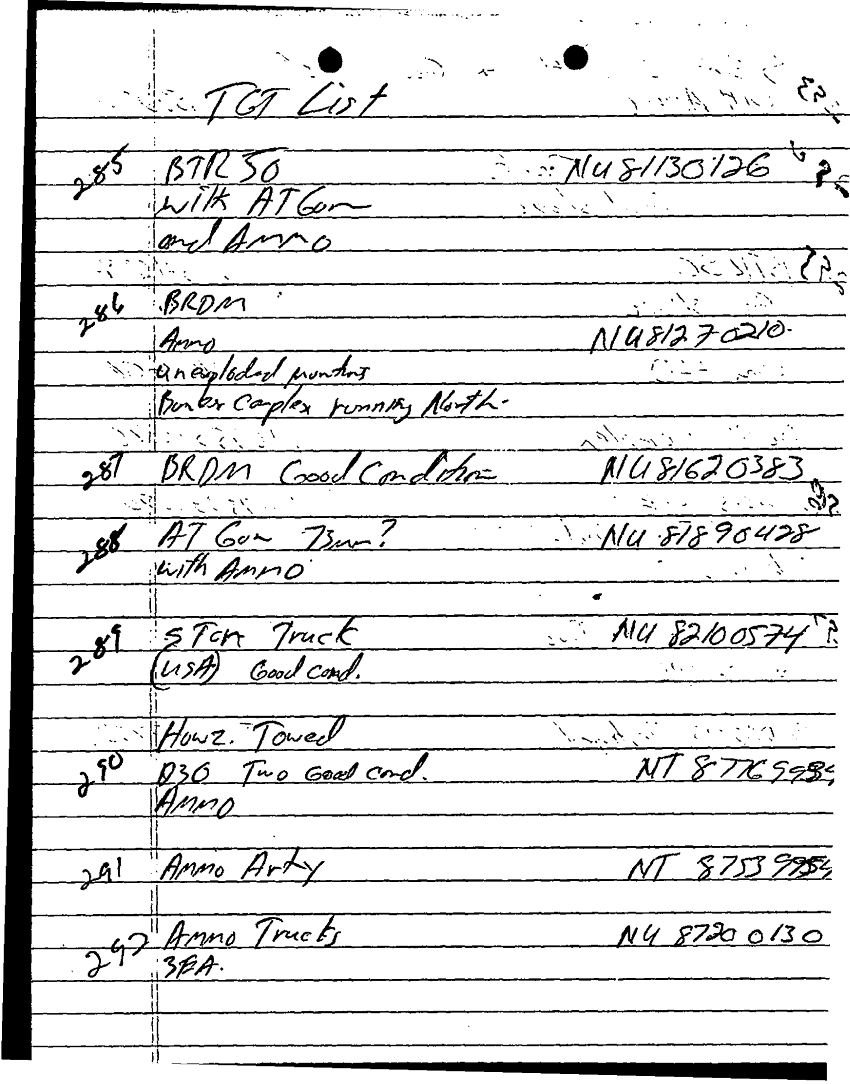 TGT List
285 BTR 50 NU 81130126
with AT Gun
and Ammo
286 BRDM
Ammo NU 81270210
unexploded muntions
Bunker Complex running North-
287 BRDM Good Condition NU 81620383
288 AT Gun 73mm? NU 81890428
with Ammo
289 5 Ton Truck NU 82100574
(USA) Good cond.
Howz. Towed
290 D30 Two Good cond. NT
Ammo
291 Ammo Arty NT
292 Ammo Trucks NU 87200130
3EA.